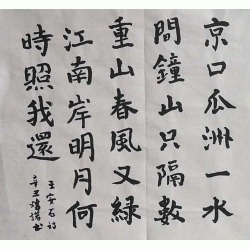 京口瓜洲一水
間鐘山只隔數
重山春風又緑
江南岸明月何
時照我還
王安石詩
辛丑
书